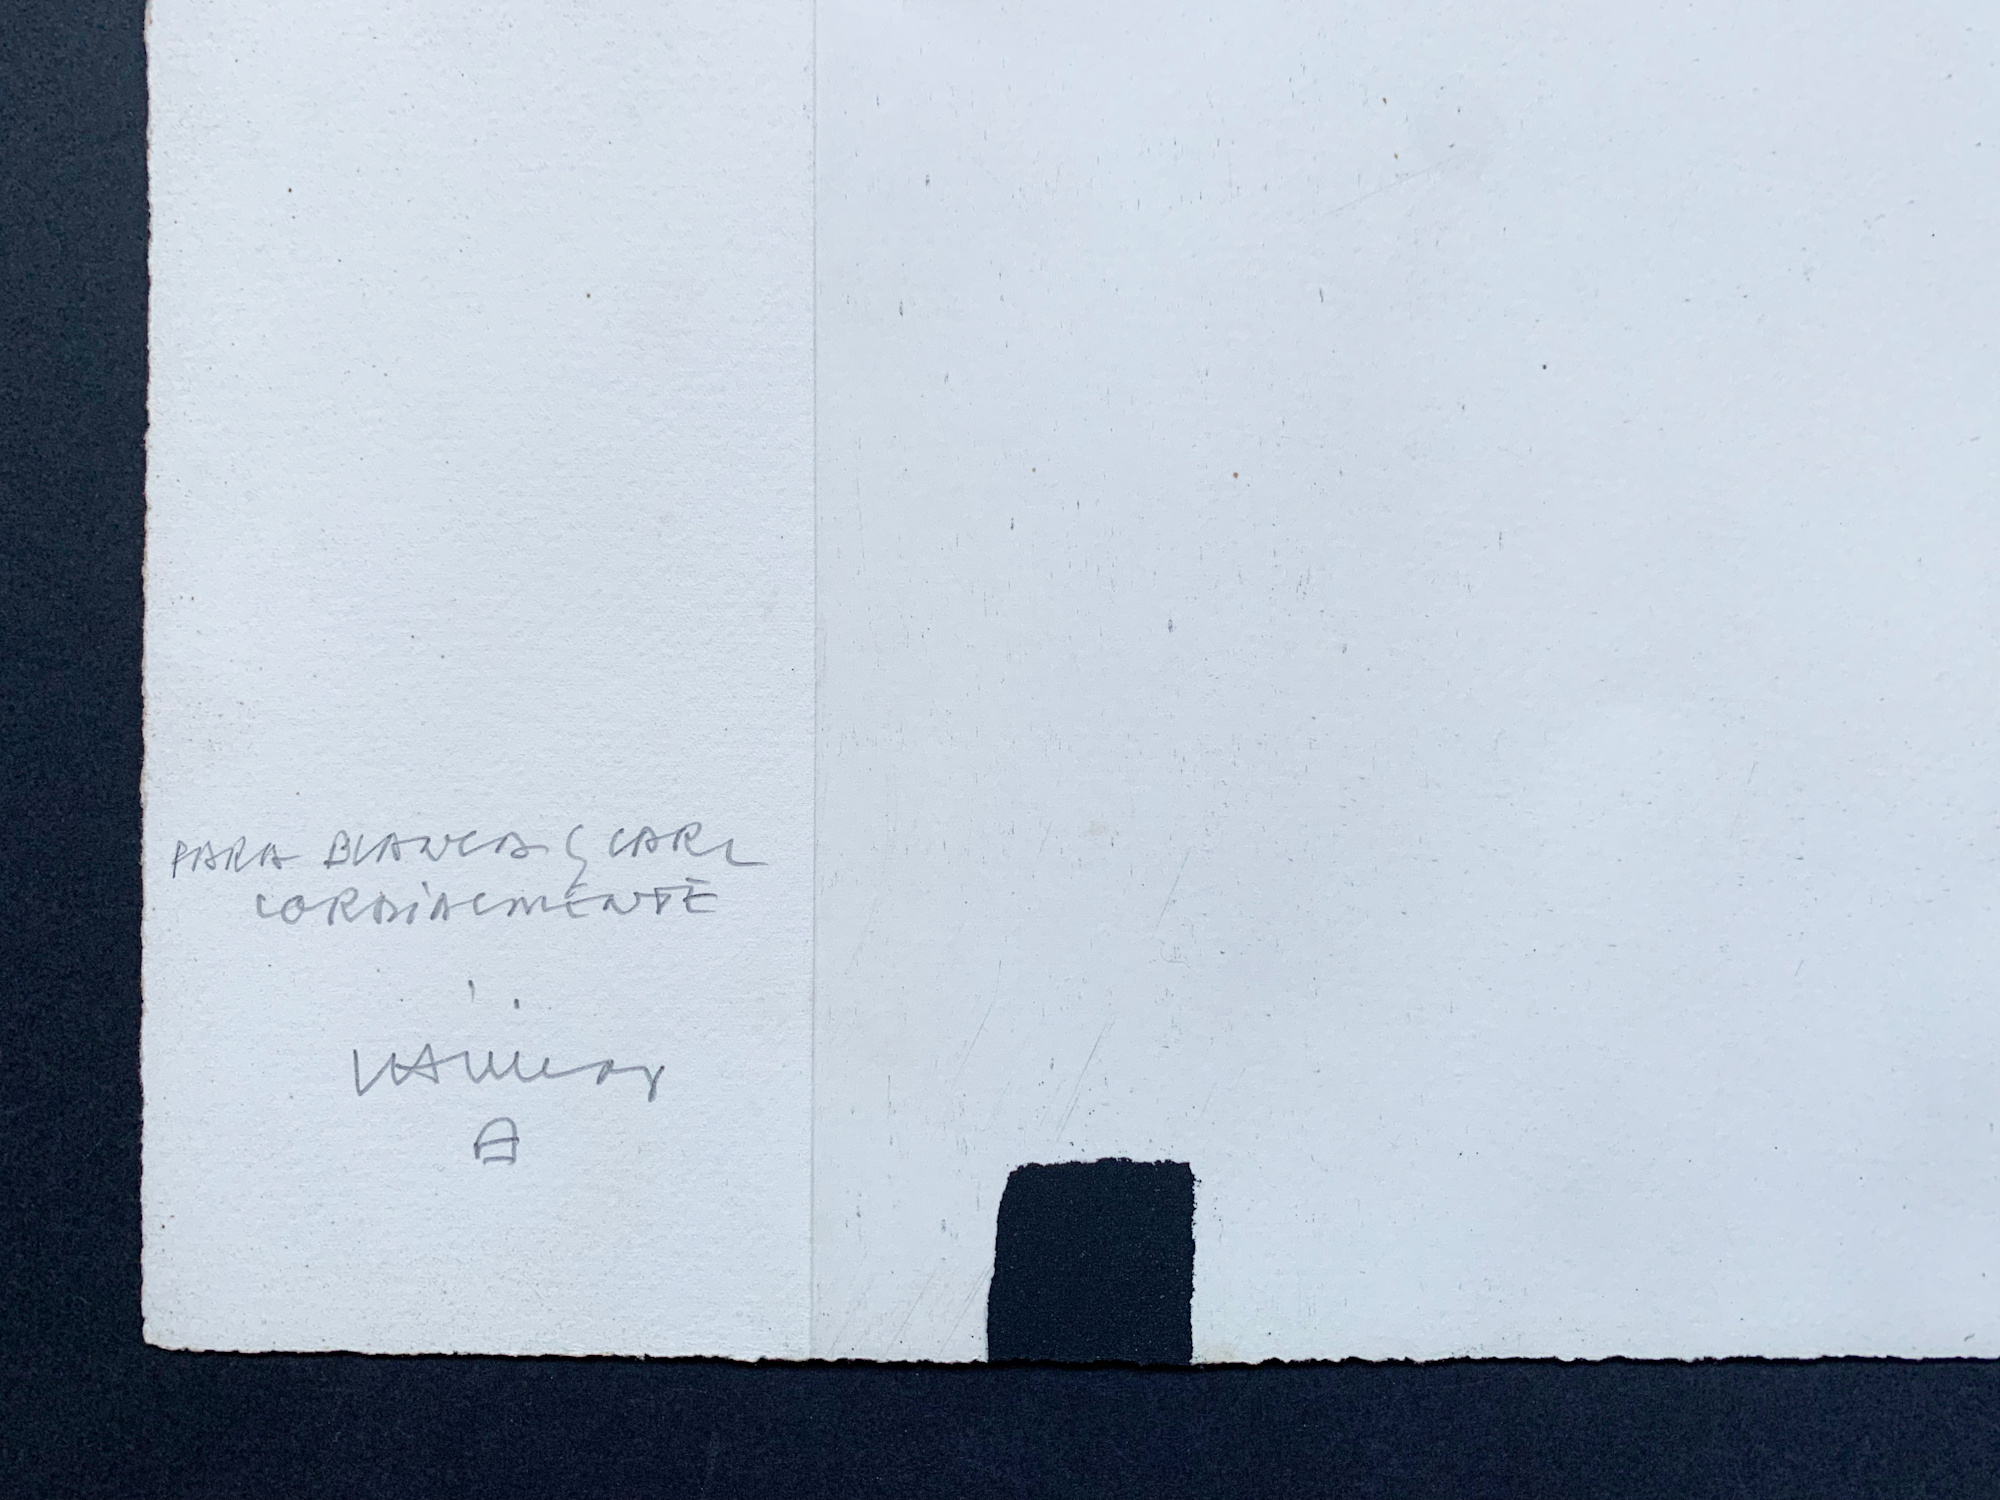 PARA BLANCA Y CARL
CORDIALMENTE